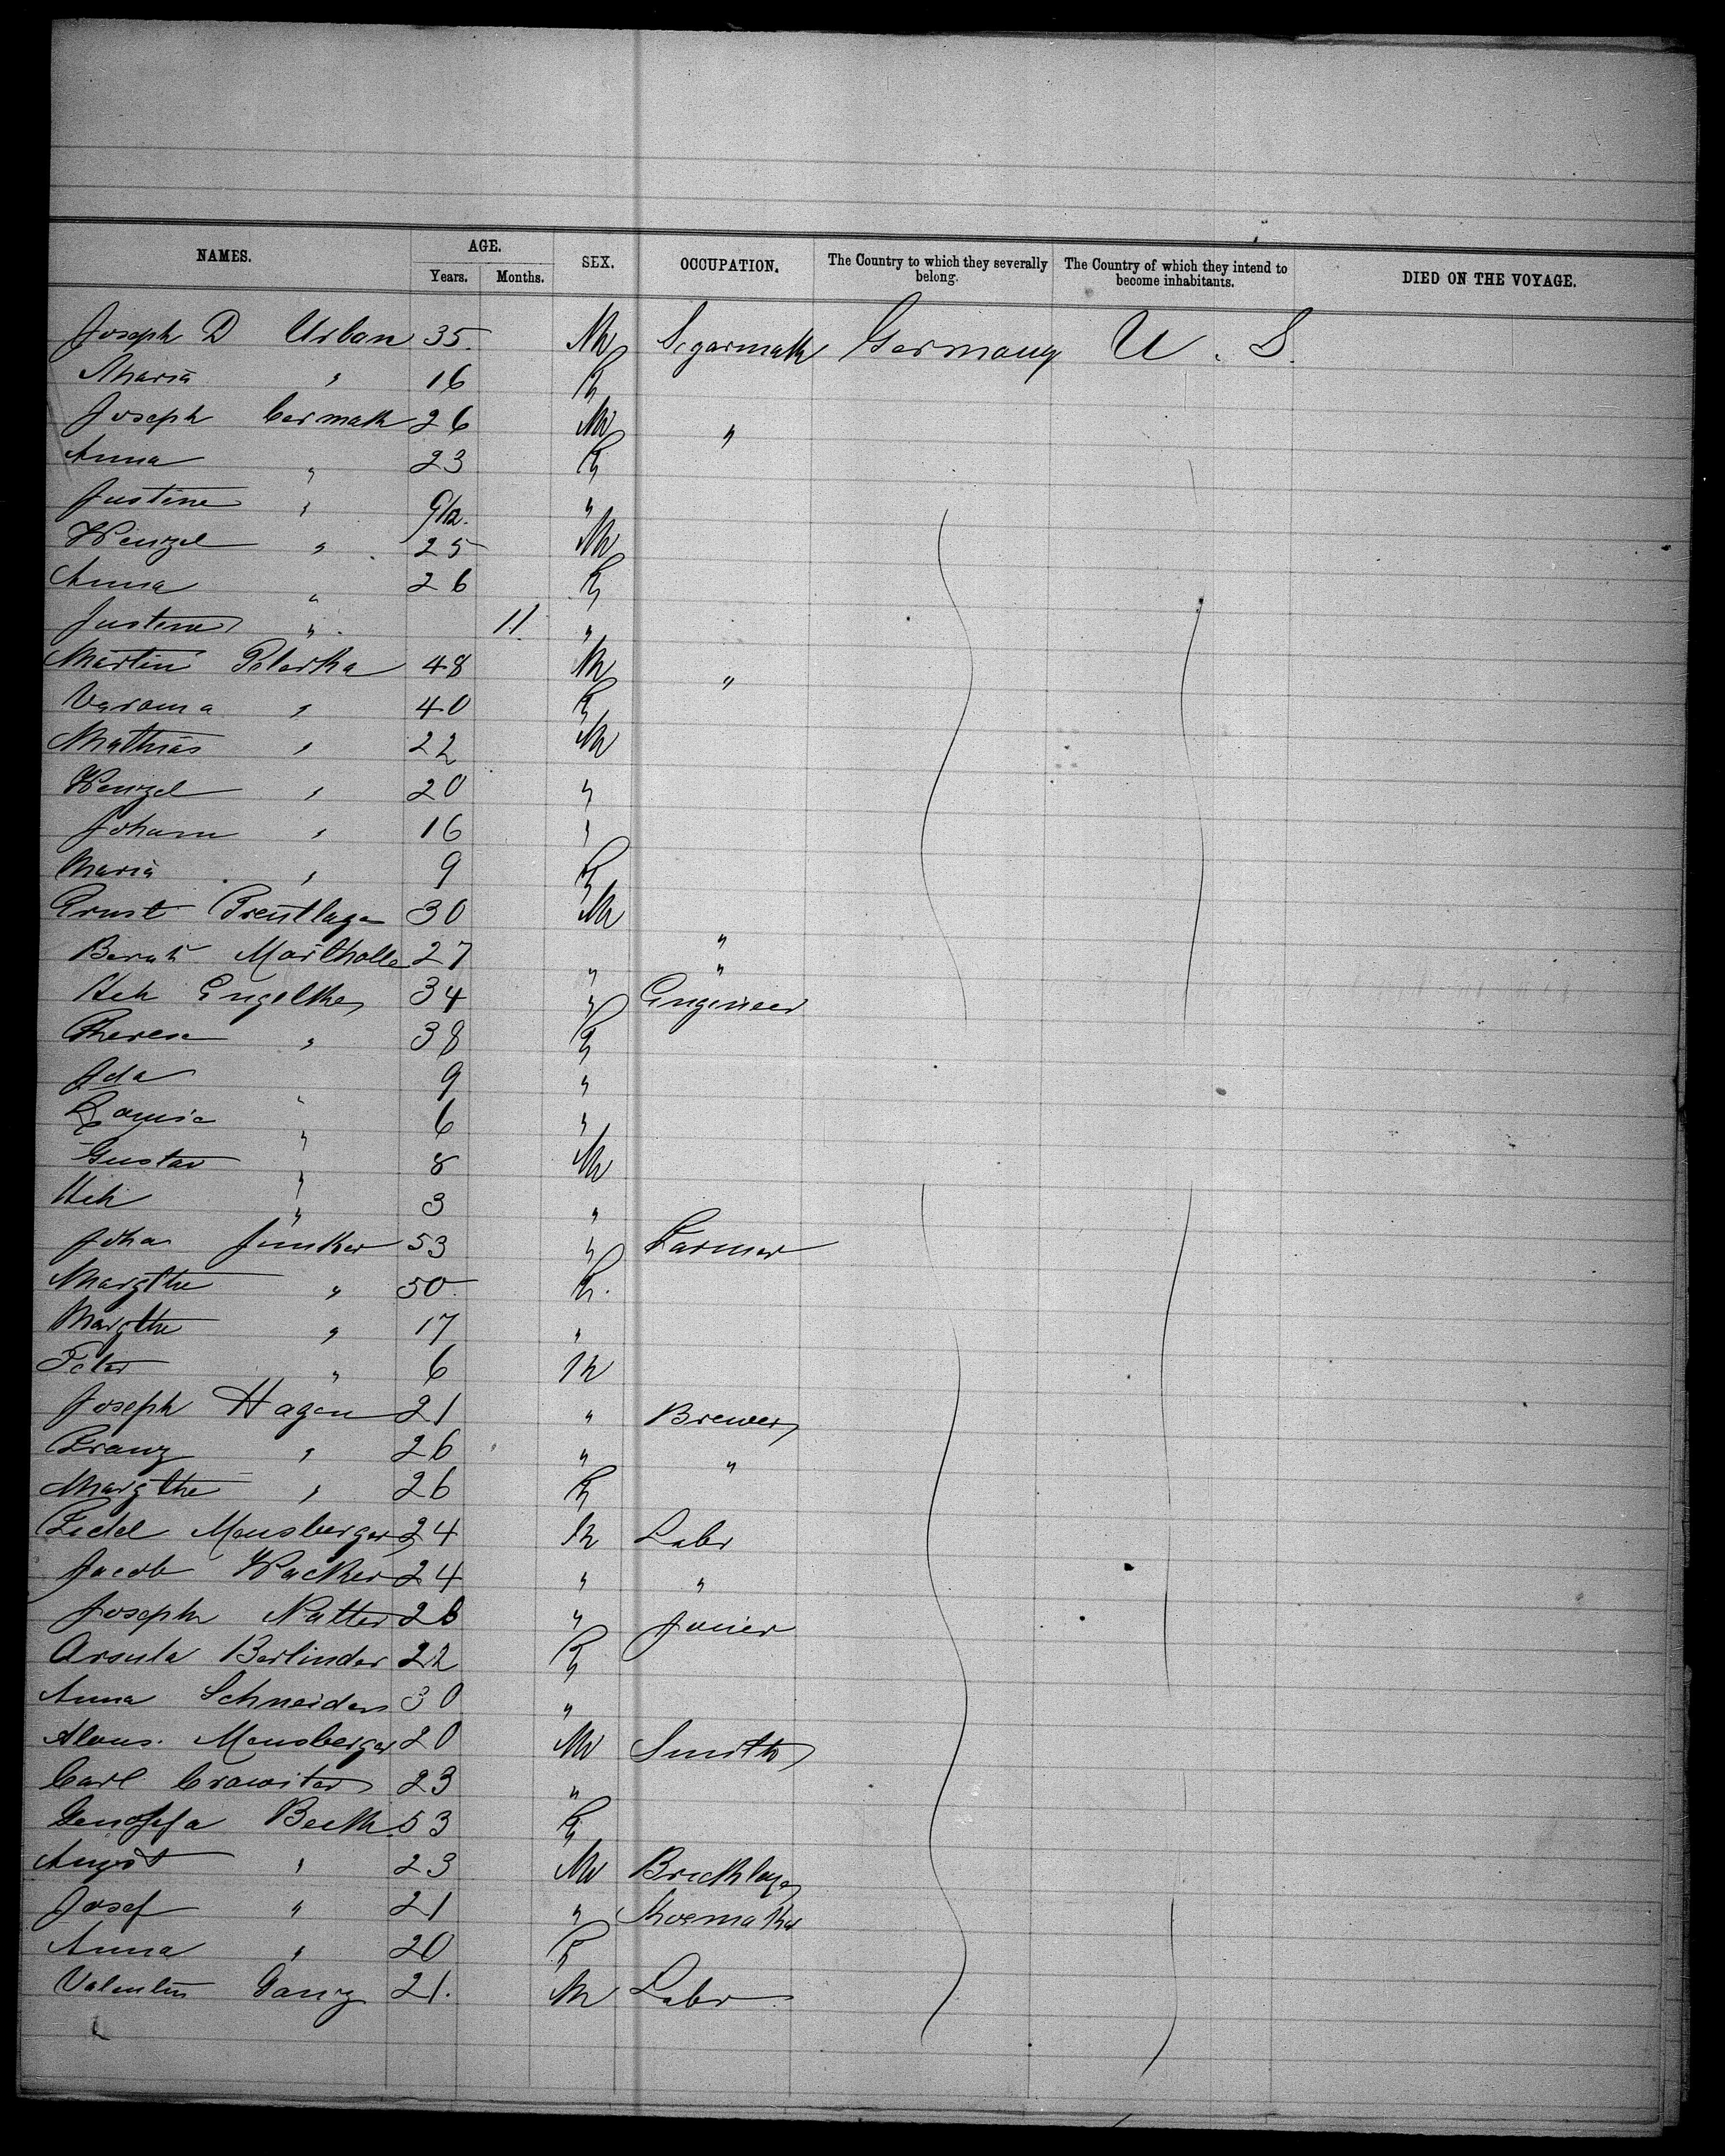 NAMES. AGE. SEX. OCCUPATION. The Country to which they severally belong. The Country of which they intend to become inhabitants. DIED ON THE VOYAGE.
Years. Months.
Joseph D Urban 35. M Segarmak Germany U. S.
Maria " 16 F
Joseph Cermak 26 M "
Anna " 23 F
Justine " 9/12. "
Wenzel " 25 M
Anna " 26 F
Justine " 11 "
Martin Pelarka 48 M "
Varona " 40 F
Mathias " 22 M
Wenzel " 20 "
Johann " 16 "
Maria " 9 F
Ernst Trentlage 30 M "
Bernh Martholle 27 " "
Hch Engelke 34 " Engineer
Therese " 38 F
Ida " 9 "
Louise " 6 "
Gustav " 8 M
Hch " 3 "
Joha Junker 53 " Farmer
Margthe " 50. F.
Margthe " 17 "
Peter " 6 M
Joseph Hagen 21 " Brewer
Franz " 26 " "
Margthe " 26 F
Fidel Mensberger 24 M Labr
Jacob Wacker 24 " "
Joseph Natter 26 " Joiner
Ursula Berlinder 22 F
Anna Schneider 30 "
Alous. Mensberger 20 M Smith
Carl Crawiter 23 "
Genoffa Beck 53 F
August " 23 M Bricklayer
Josef " 21 " Shoemaker
Anna " 20 F
Valentin Ganz 21. M Labr